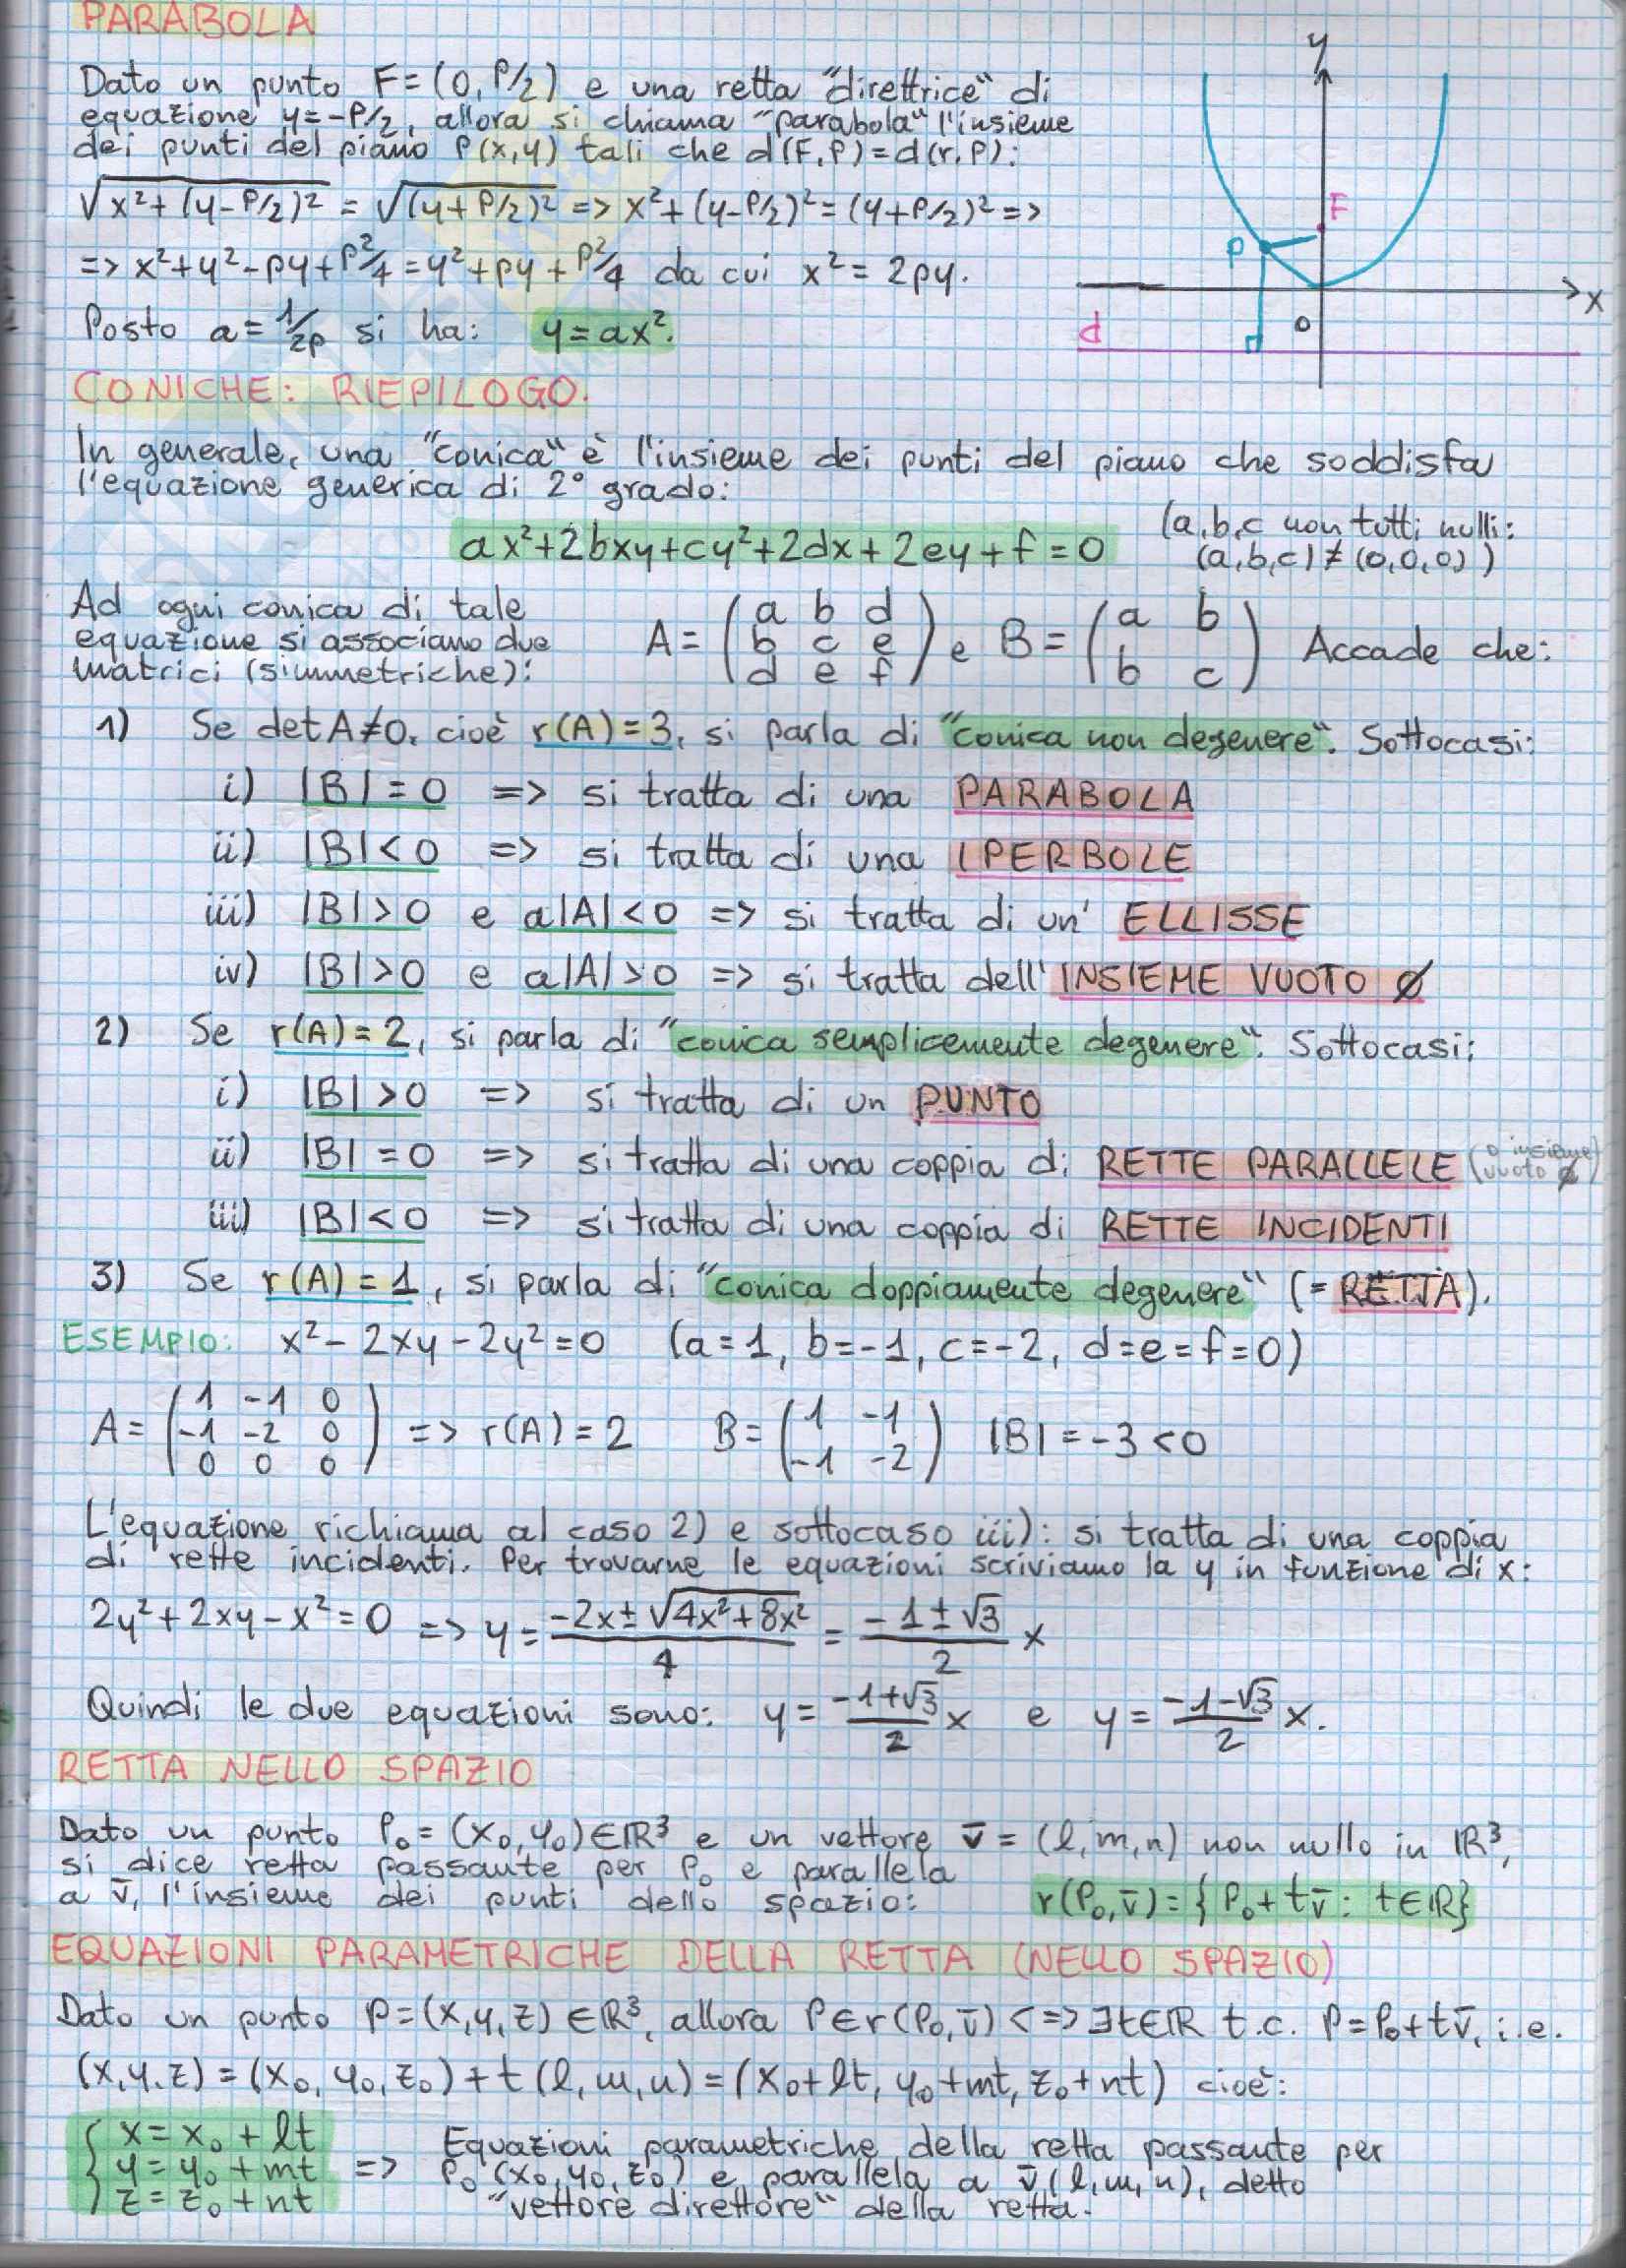 PARABOLA
Dato un punto F=(0,P/2) e una retta "direttrice" di
equazione y=-P/2, allora si chiama "parabola" l'insieme
dei punti del piano P(x,y) tali che d(F,P)=d(r,P):
√x²+(y-P/2)² = √(y+P/2)² => x²+(y-P/2)²=(y+P/2)² =>
=> x²+y²-py+p²/4=y²+py+p²/4 da cui x²=2py.
Posto a=1/2p si ha: y=ax².
y
F
P
x
O
d
CONICHE: RIEPILOGO.
In generale, una "conica" è l'insieme dei punti del piano che soddisfa
l'equazione generica di 2° grado:
ax²+2bxy+cy²+2dx+2ey+f=0 (a,b,c non tutti nulli:
(a,b,c)≠(0,0,0))
Ad ogni conica di tale
equazione si associano due
matrici (simmetriche):
A= (a b d
b c e
d e f) e B= (a b
b c) Accade che:
1) Se detA≠0, cioè r(A)=3, si parla di "conica non degenere". Sottocasi:
i) |B|=0 => si tratta di una PARABOLA
ii) |B|<0 => si tratta di una IPERBOLE
iii) |B|>0 e a|A|<0 => si tratta di un' ELLISSE
iv) |B|>0 e a|A|>0 => si tratta dell'INSIEME VUOTO ∅
2) Se r(A)=2, si parla di "conica semplicemente degenere". Sottocasi:
i) |B|>0 => si tratta di un PUNTO
ii) |B|=0 => si tratta di una coppia di RETTE PARALLELE (o insieme
vuoto ∅)
iii) |B|<0 => si tratta di una coppia di RETTE INCIDENTI
3) Se r(A)=1, si parla di "conica doppiamente degenere" (=RETTA).
ESEMPIO: x²-2xy-2y²=0 (a=1, b=-1, c=-2, d=e=f=0)
A= (1 -1 0
-1 -2 0
0 0 0) => r(A)=2 B= (1 -1
-1 -2) |B|=-3<0
L'equazione richiama al caso 2) e sottocaso iii): si tratta di una coppia
di rette incidenti. Per trovarne le equazioni scriviamo la y in funzione di x:
2y²+2xy-x²=0 => y= -2x±√4x²+8x² / 4 = -1±√3 / 2 x
Quindi le due equazioni sono: y= -1+√3 / 2 x e y= -1-√3 / 2 x.
RETTA NELLO SPAZIO
Dato un punto P₀=(x₀,y₀)∈ℝ³ e un vettore v̄=(l,m,n) non nullo in ℝ³,
si dice retta passante per P₀ e parallela
a v̄, l'insieme dei punti dello spazio: r(P₀,v̄)={P₀+tv̄: t∈ℝ}
EQUAZIONI PARAMETRICHE DELLA RETTA (NELLO SPAZIO)
Dato un punto P=(x,y,z)∈ℝ³, allora P∈r(P₀,v̄) <=> ∃t∈ℝ t.c. P=P₀+tv̄, i.e.
(x,y,z)=(x₀,y₀,z₀)+t(l,m,n)=(x₀+lt, y₀+mt, z₀+nt) cioè:
{ x=x₀+lt
y=y₀+mt
z=z₀+nt
=> Equazioni parametriche della retta passante per
P₀(x₀,y₀,z₀) e parallela a v̄(l,m,n), detto
"vettore direttore" della retta.